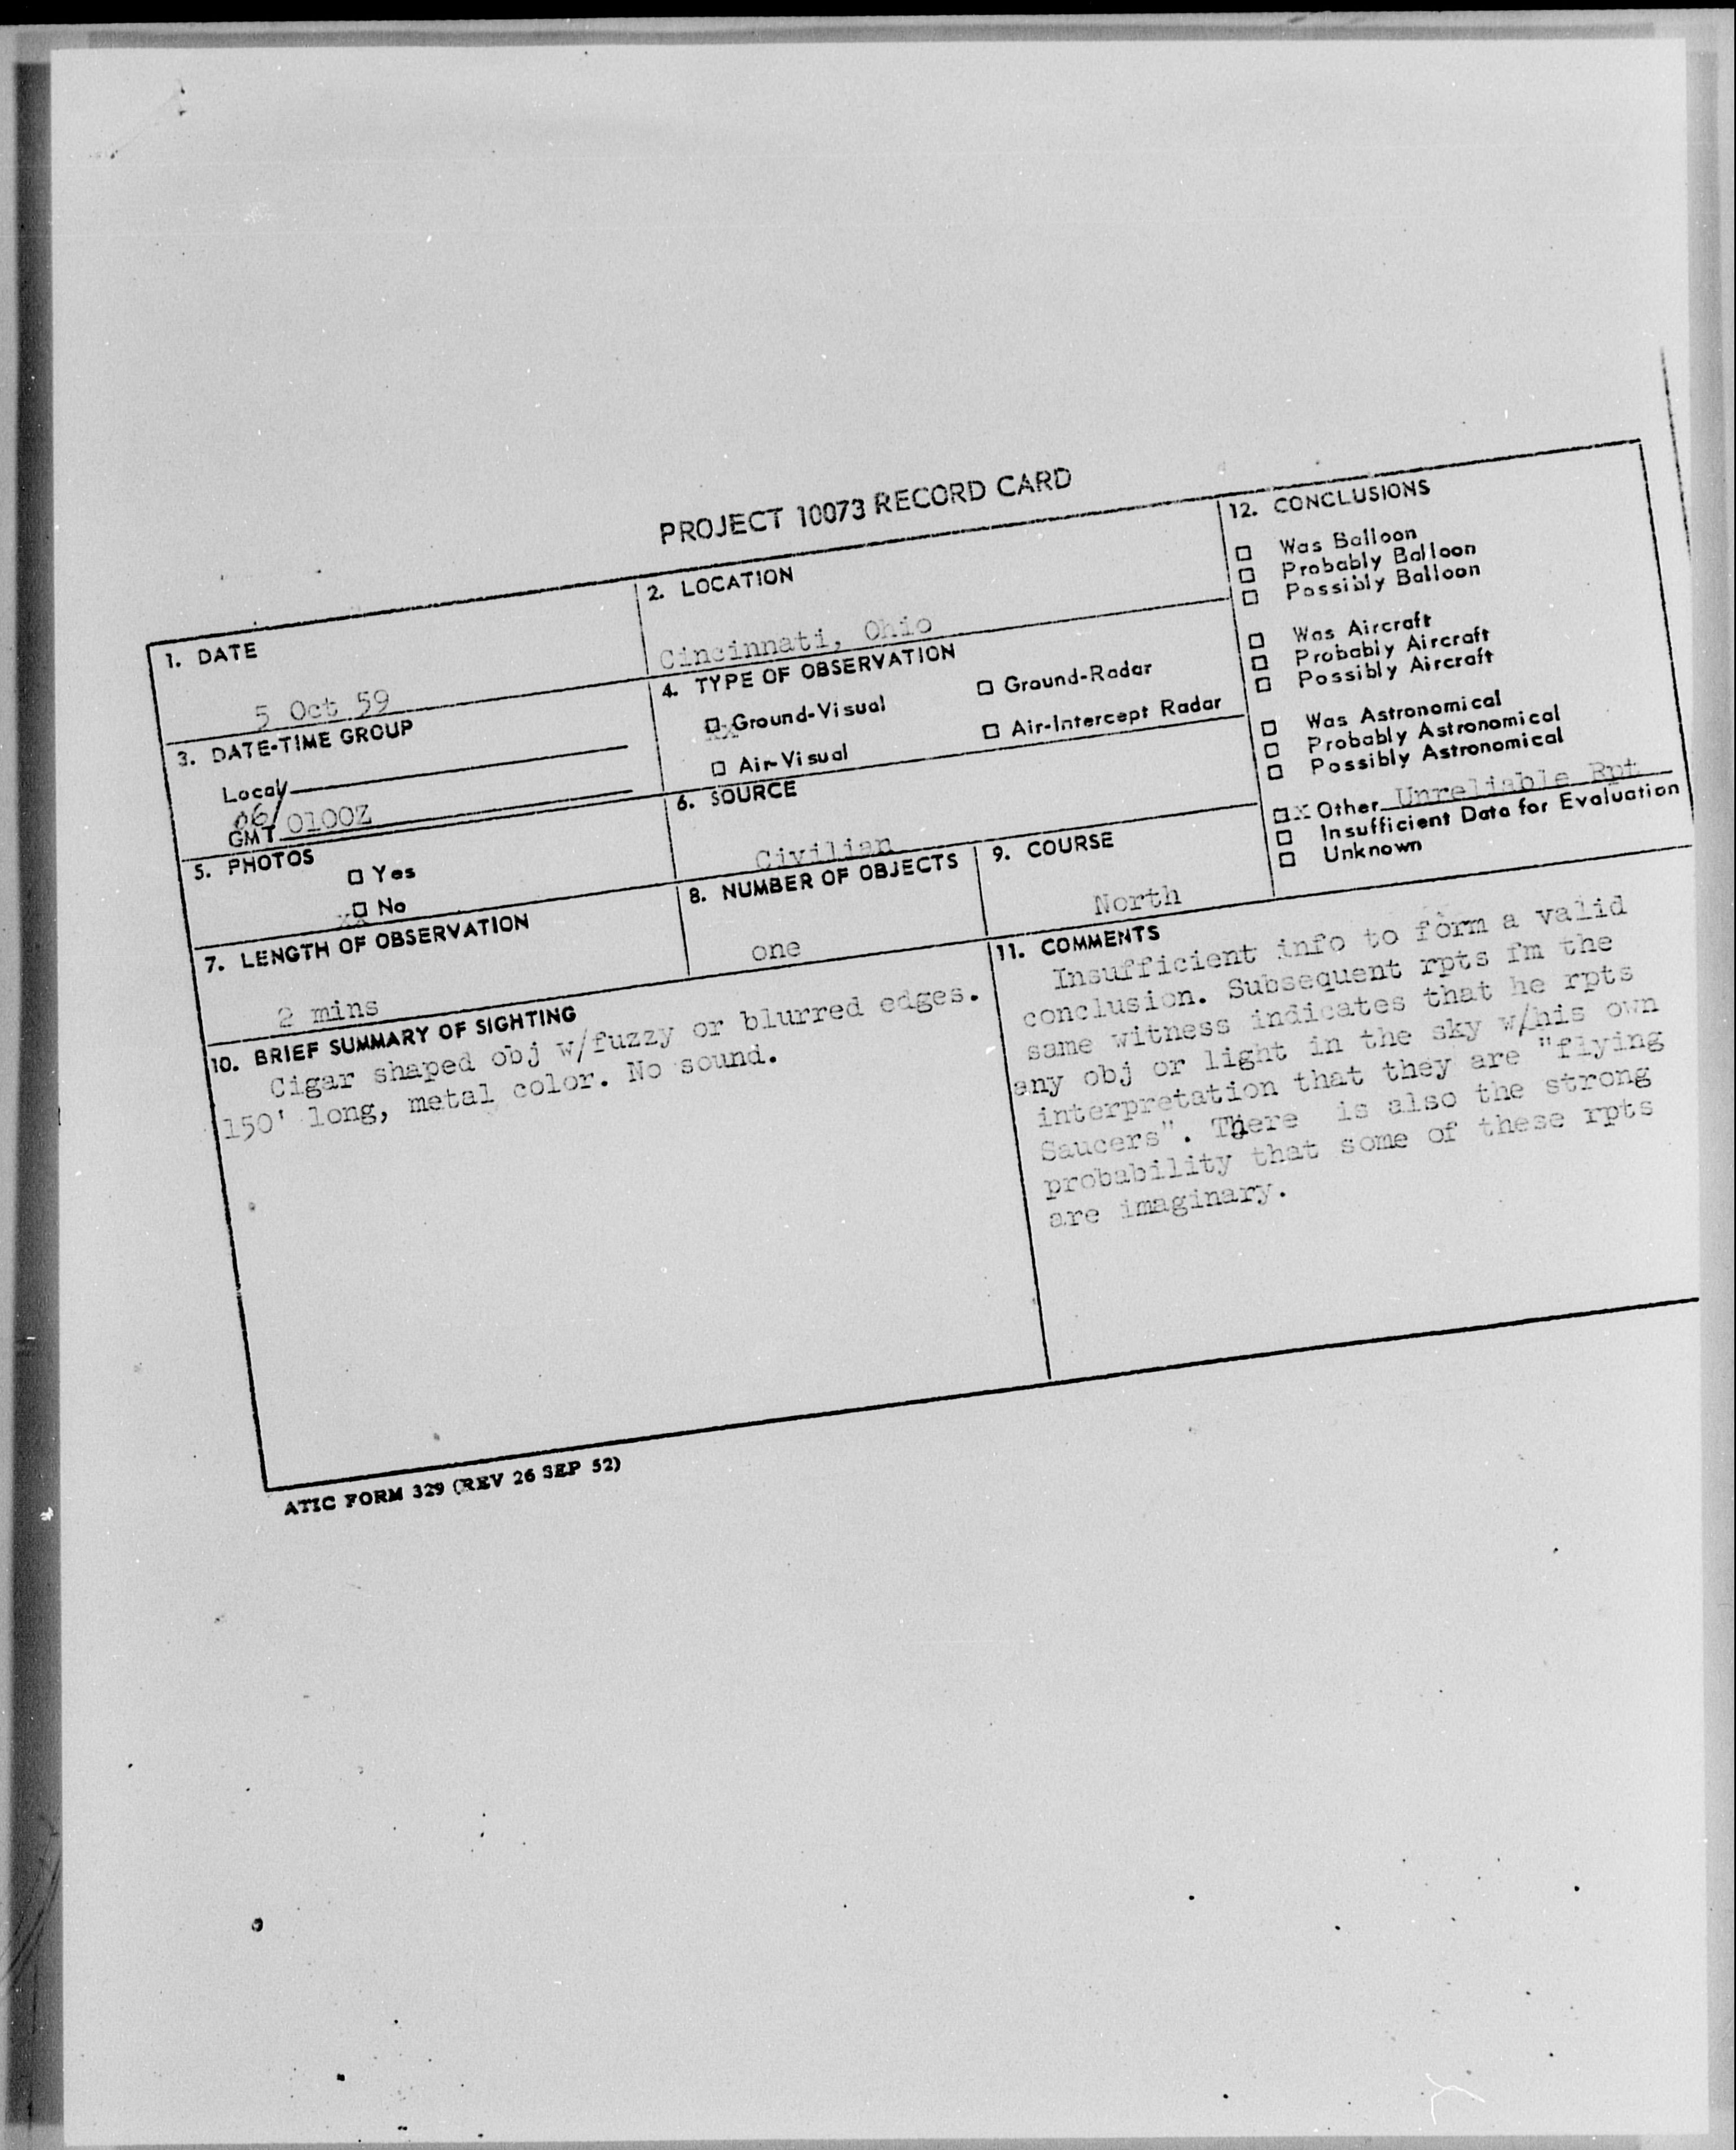 PROJECT 10073 RECORD CARD
1. DATE
5 Oct 59
2. LOCATION
Cincinnati, Ohio
3. DATE-TIME GROUP
Local
06/
GMT 0100Z
4. TYPE OF OBSERVATION
xx Ground-Visual
Ground-Radar
Air-Visual
Air-Intercept Radar
5. PHOTOS
Yes
xx No
6. SOURCE
Civilian
7. LENGTH OF OBSERVATION
2 mins
8. NUMBER OF OBJECTS
one
9. COURSE
North
10. BRIEF SUMMARY OF SIGHTING
Cigar shaped obj w/fuzzy or blurred edges.
150' long, metal color. No sound.
11. COMMENTS
Insufficient info to form a valid
conclusion. Subsequent rpts fm the
same witness indicates that he rpts
any obj or light in the sky w/his own
interpretation that they are "flying
Saucers". There is also the strong
probability that some of these rpts
are imaginary.
12. CONCLUSIONS
Was Balloon
Probably Balloon
Possibly Balloon
Was Aircraft
Probably Aircraft
Possibly Aircraft
Was Astronomical
Probably Astronomical
Possibly Astronomical
x Other Unreliable Rpt
Insufficient Data for Evaluation
Unknown
ATIC FORM 329 (REV 26 SEP 52)